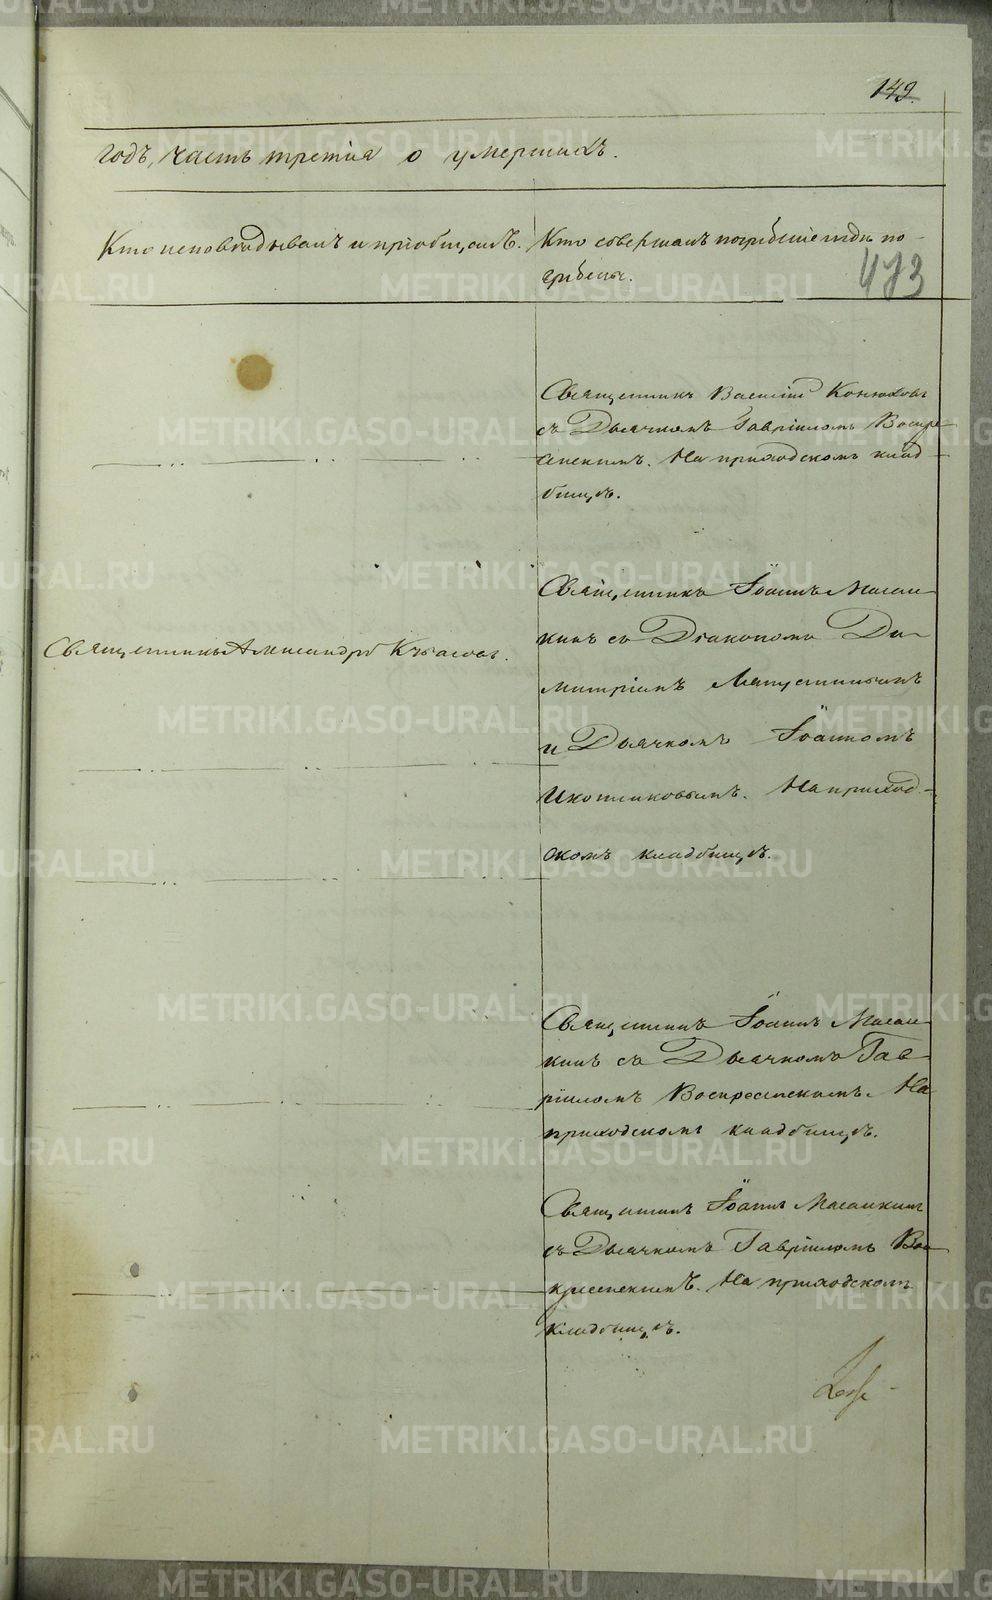 149.
годъ, часть третія о умершихъ.
Кто исповѣдывалъ и пріобщалъ.
Кто совершалъ погребеніе и гдѣ по-
гребены.
473
Священникъ Василій Конюховъ
съ Дьячкомъ Гавріиломъ Воскре-
сенскимъ. На приходскомъ клад-
бищѣ.
Священникъ Александръ
Священникъ Іоаннъ Масал-
кинъ съ Діакономъ Ди-
митріемъ
и Дьячкомъ Іоанномъ
Иконниковымъ. На приход-
скомъ кладбищѣ.
Священникъ Іоаннъ Масал-
кинъ съ Дьячкомъ Гав-
ріиломъ Воскресенскимъ. На
приходскомъ кладбищѣ.
Священникъ Іоаннъ Масалкинъ
съ Дьячкомъ Гавріиломъ Вос-
кресенскимъ. На приходскомъ
кладбищѣ.
METRIKI.GASO-URAL.RU